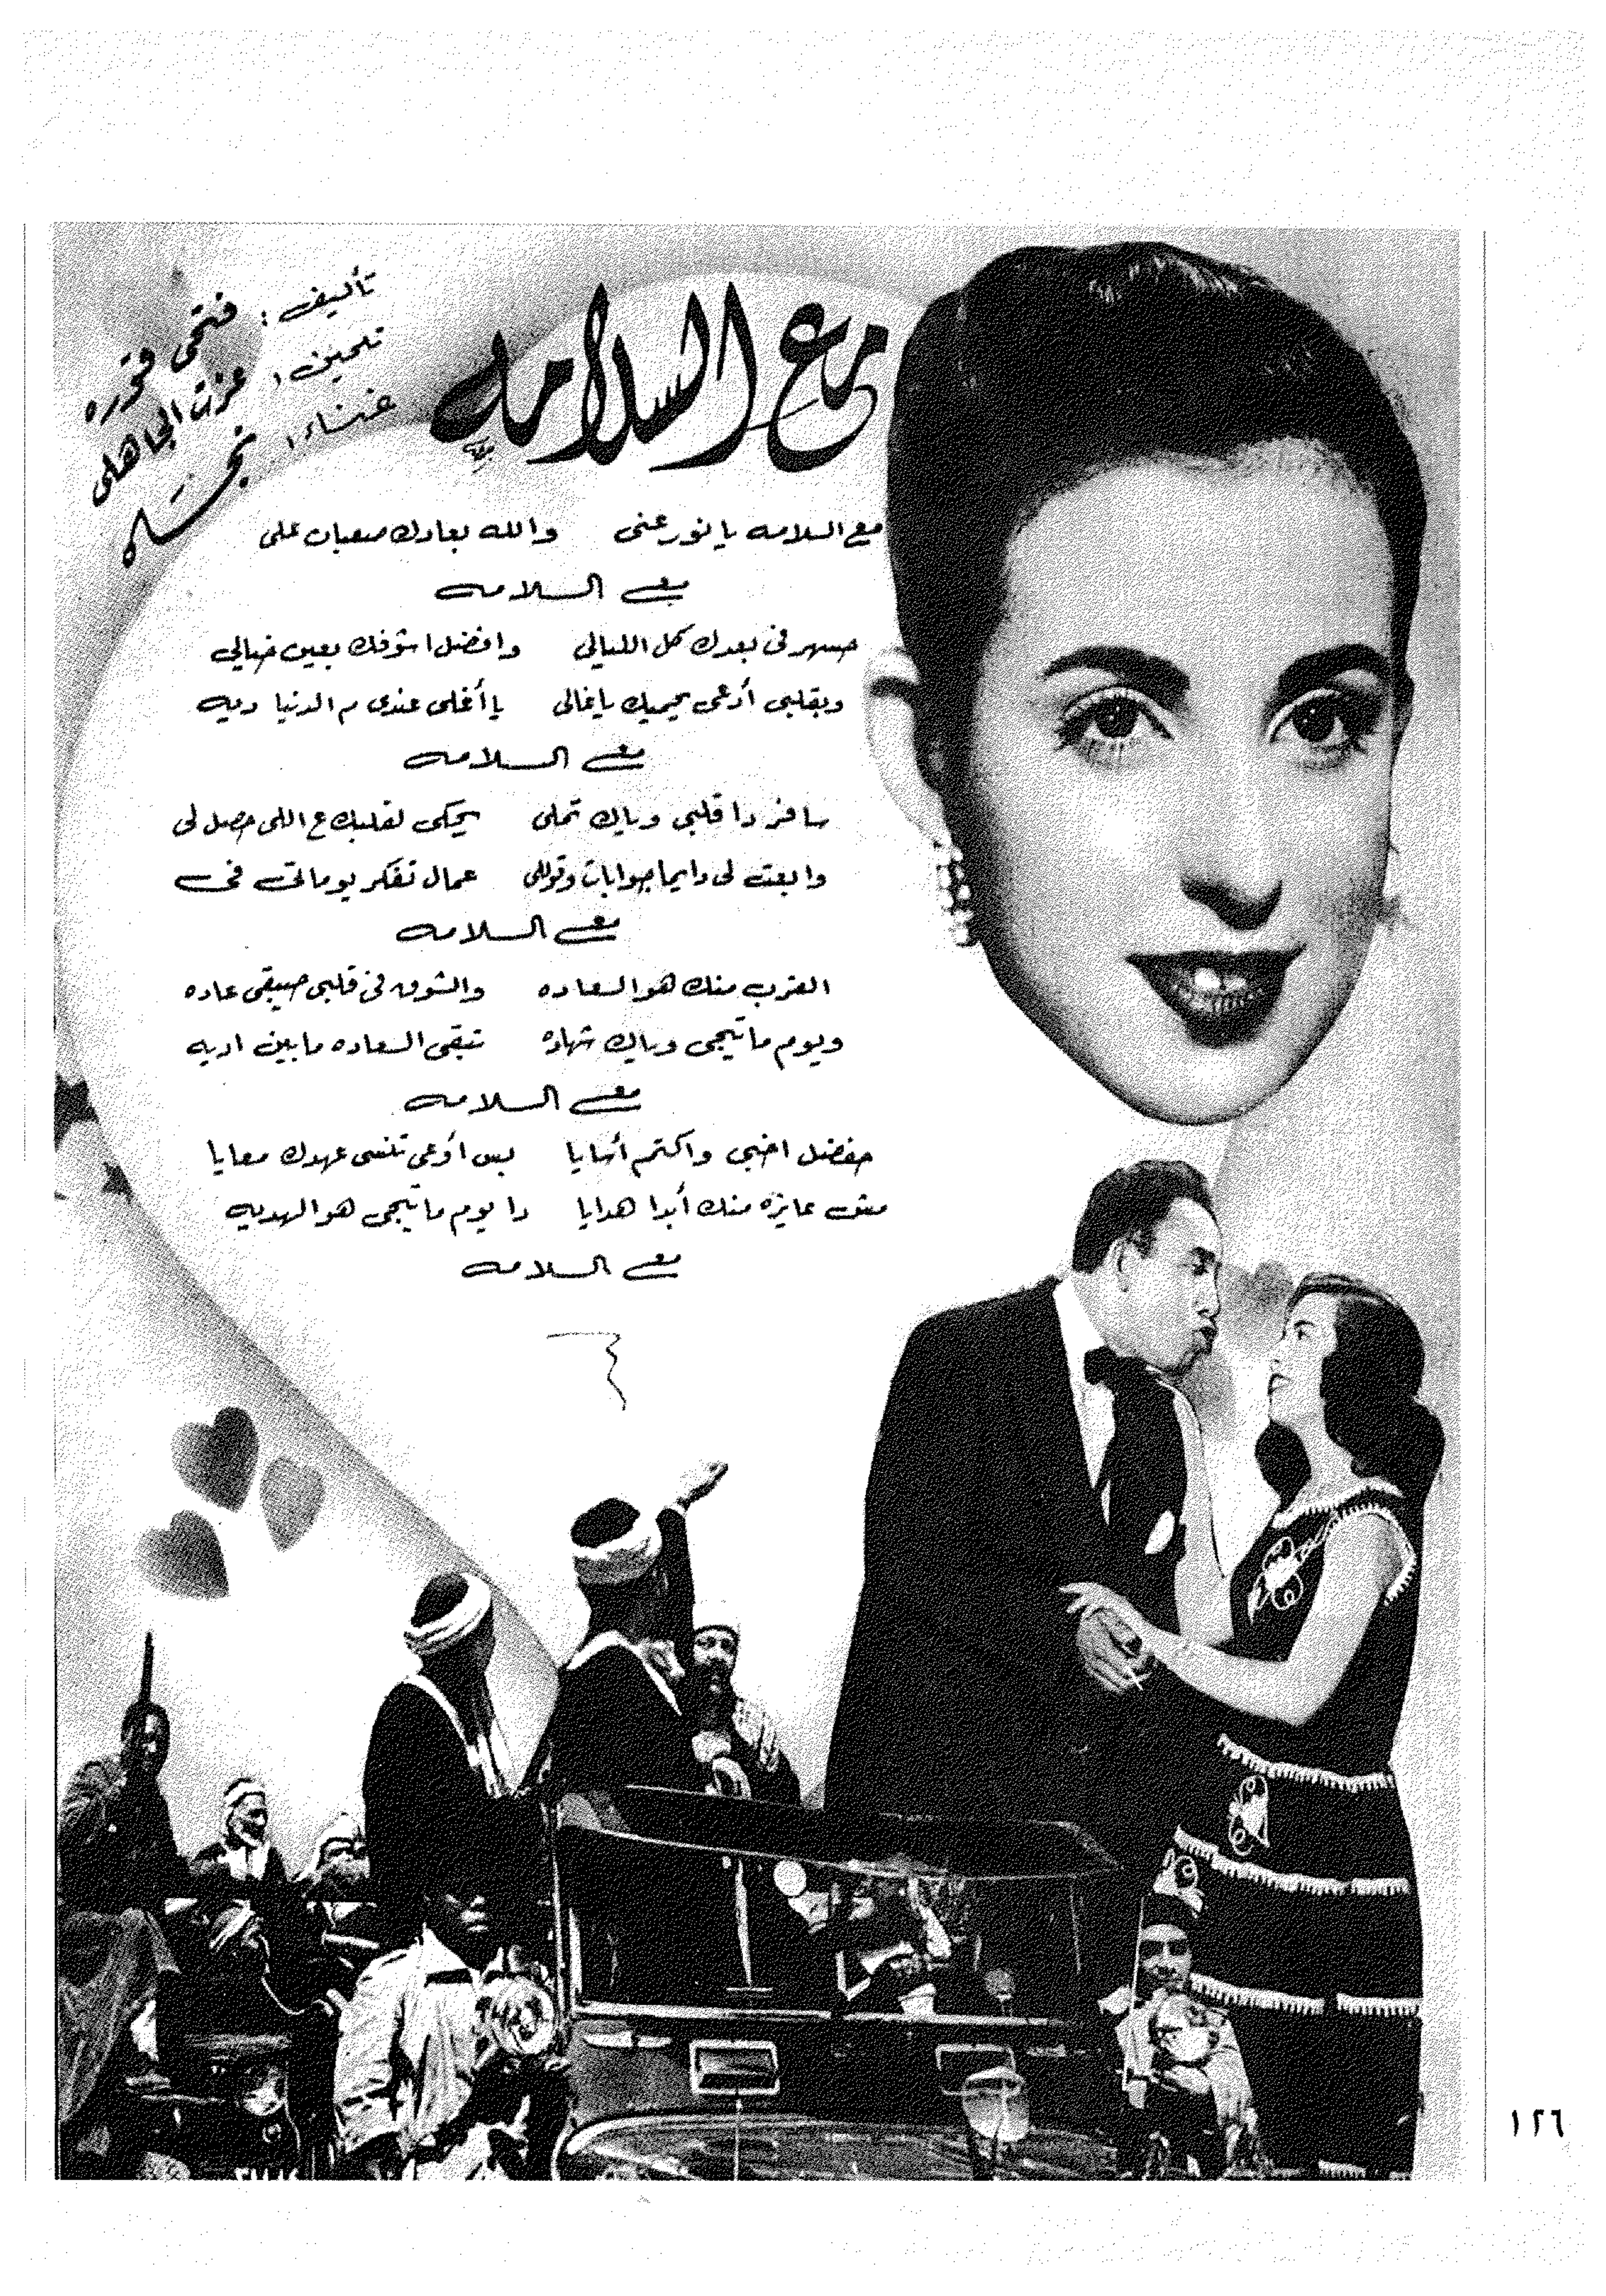 مع السلامه
تأليف : فتحى قوره
تلحين : عزت الجاهلى
غناء : نجاه
مع السلامه يا نور عنى والله بعادك صعبان على
مع السلامه
حسهر فى بعدك كل الليالى وافضل اشوفك بعين خيالى
وبقلبى أدعى يحميك ياغالى يا أغلى عندى م الدنيا ديه
مع السلامه
سافر دا قلبى وياك تملى يحكى لقلبك ع اللى حصل لى
وابعت لى دايما جوابات وقوللى عمال تفكر يوماتى فى
مع السلامه
القرب منك هو السعاده والشوق فى قلبى حيبقى عاده
ويوم ماتيجى وياك شهاده تبقى السعاده مابين اديه
مع السلامه
حفضل اخبى واكتم أسايا بس أوعى تنسى عهدك معايا
مش عايزه منك أبدا هدايا دا يوم ماتيجى هو الهديه
مع السلامه
١٢٦